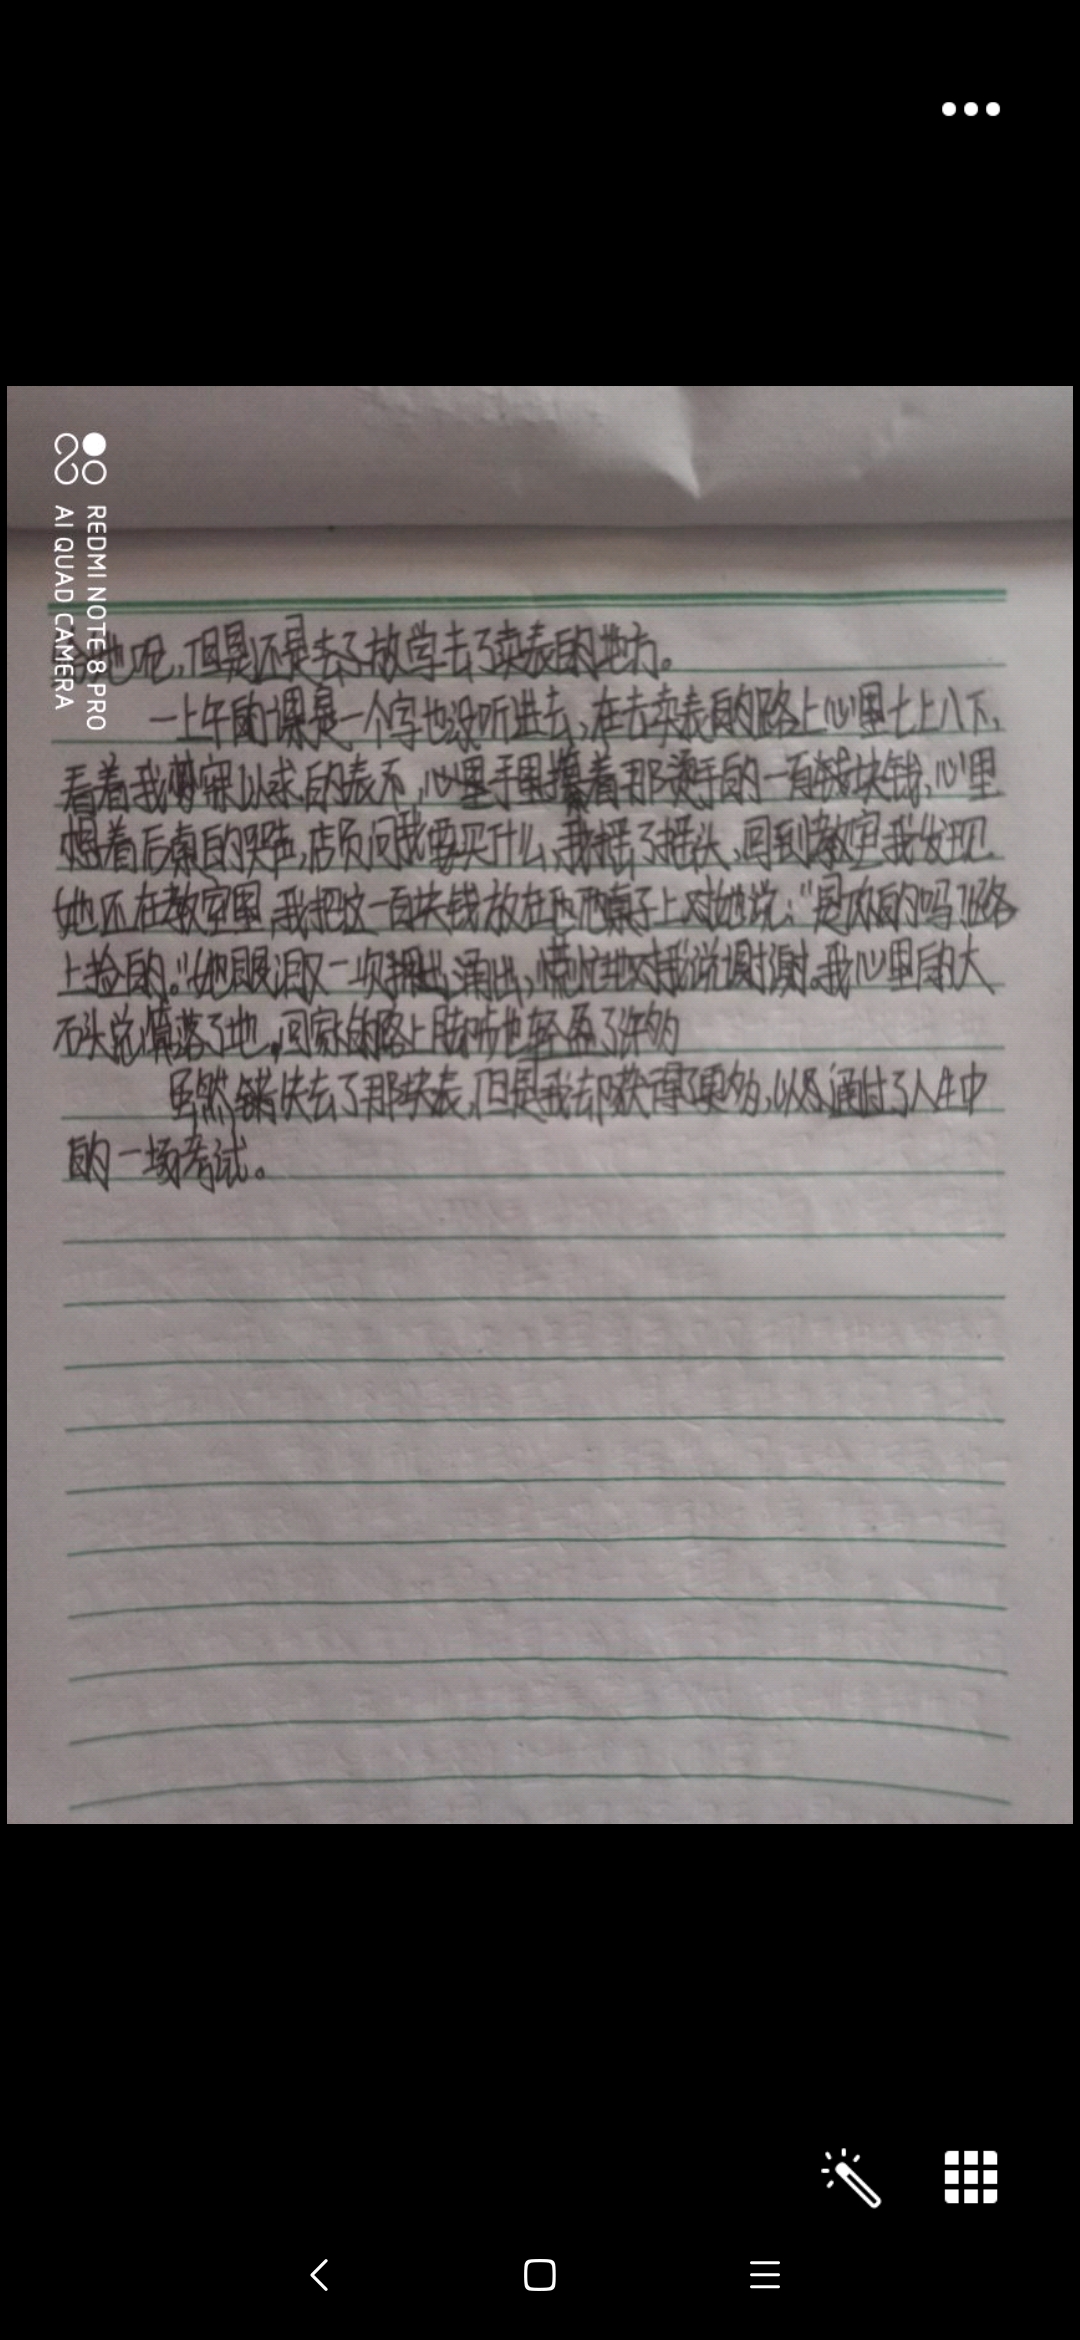 REDMI NOTE 8 PRO
AI QUAD CAMERA
她呢,但是还是去了放学去了卖表的地方。
一上午的课是一个字也没听进去,在去卖表的路上心里七上八下,
看着我梦寐以求的表不,心里手里攥着那烫手的一百块钱,心里
想着后桌的哭声,店员问我要买什么,我摇了摇头,回到教室我发现
她还在教室里,我把这一百块钱放在她桌子上对她说:“是你的吗?路
上捡的。”她眼泪又一次涌出,慌忙地对我说谢谢。我心里的大
石头总算落了地,回家的路上脚步也轻盈了许多
虽然错失去了那块表,但是我却获得了更多,以及通过了人生中
的一场考试。